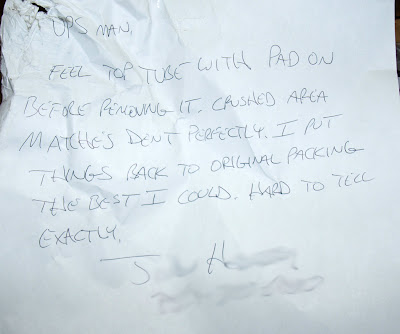 UPS MAN,
FEEL TOP TUBE WITH PAD ON
BEFORE REMOVING IT. CRUSHED AREA
MATCHE'S DENT PERFECTLY. I PUT
THINGS BACK TO ORIGINAL PACKING
THE BEST I COULD. HARD TO TELL
EXACTLY.
J H